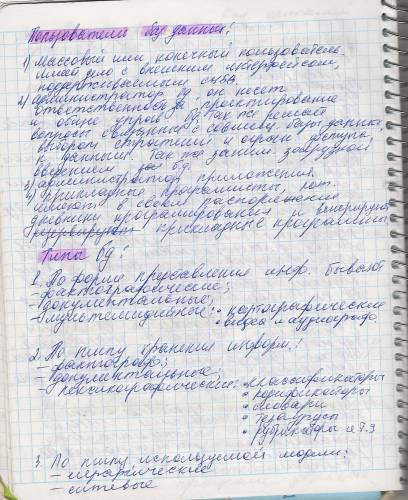 Пользователи баз данных!
1) массовый или конечный пользователь,
имеет дело с внешним интерфейсом,
поддерживаемый СУБД.
2) администратор бд, он несет
ответственность за проектирование
и общее управ. бд так же решает
вопросы связанные с баз данных,
выбором стратегий и охраны доступа
к данным. Так же данных загрузкой
ведением бд.
3) администратор приложения.
4) прикладные программисты, кот.
имеют в своем распоряжении
программирования и генерируют
прикладные программы
Типы бд:
1. По форме представления инф. бывают
– фактографические;
– документальные;
– мультемидийные: • картографические
• видео и аудиограф.
2. По типу хранения информ.:
– фактограф;
– документальное;
– лексикографические: • классификаторы
• кодификаторы
• словари
• тезаурусы
• рубрикаторы и т.з
3. По типу используемой модели:
– иерархические
– сетевые